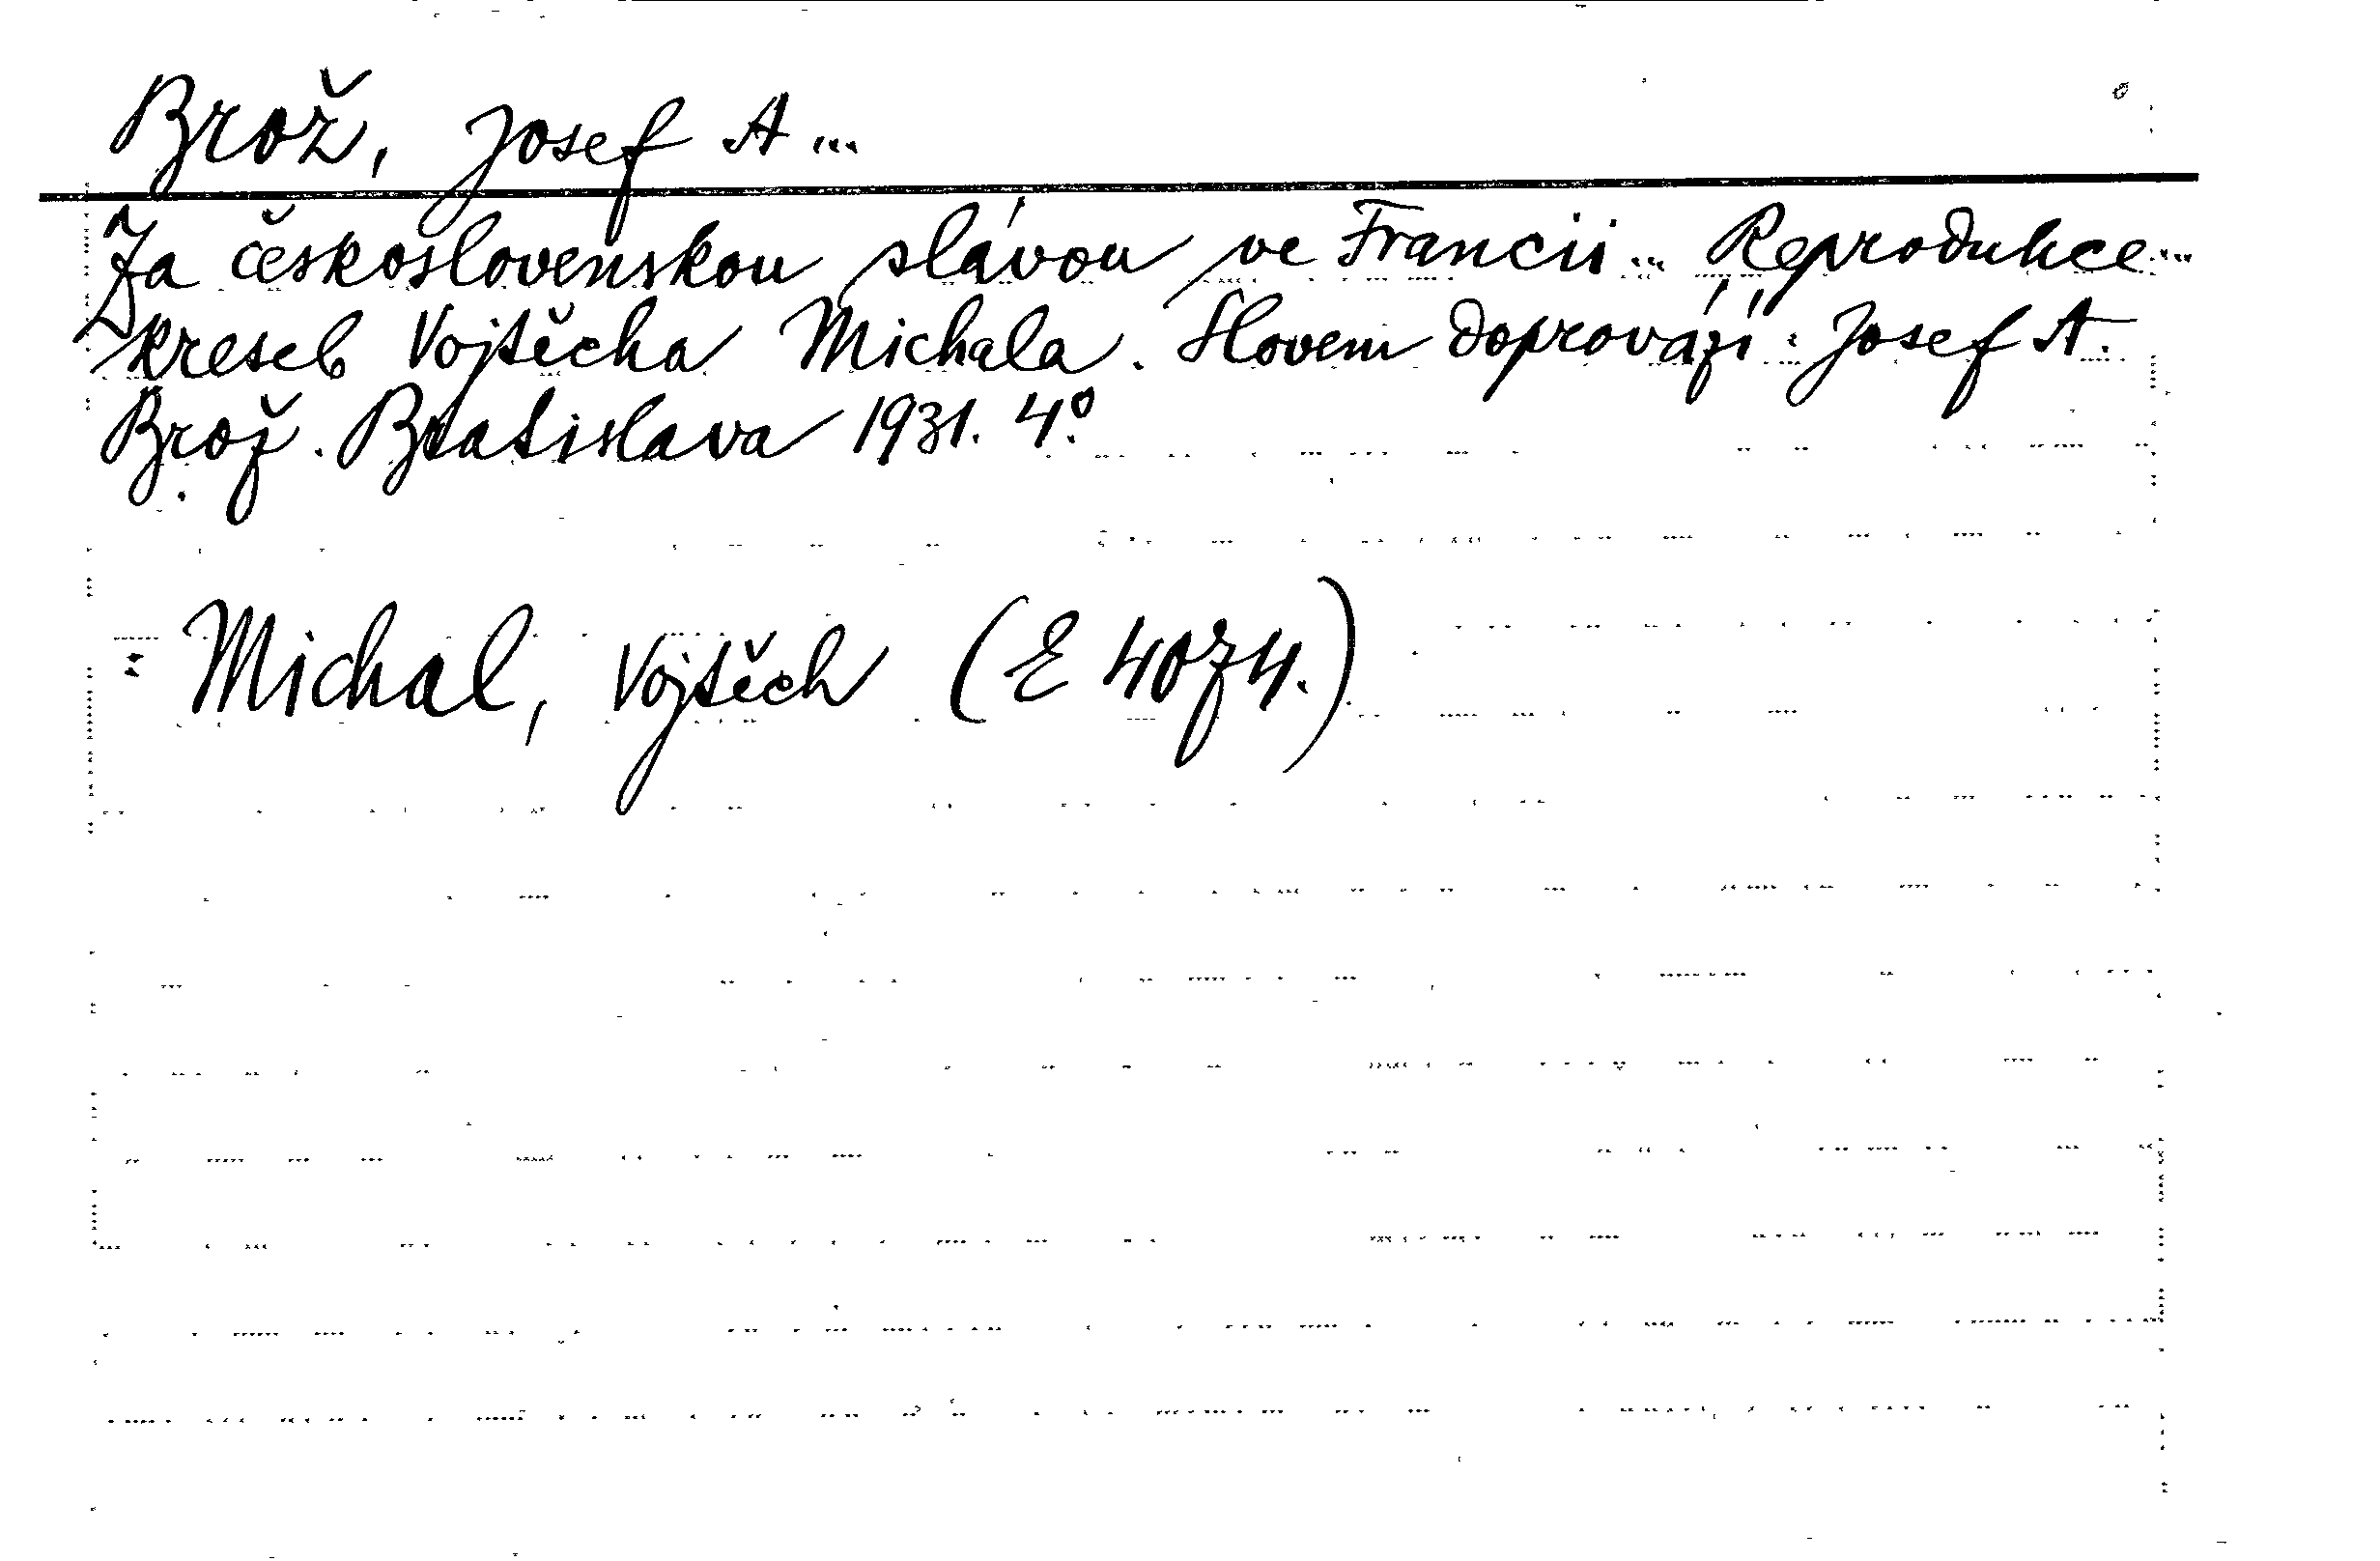 Brož, Josef A...
Za československou slávou ve Francii... Reprodukce...
kreseb Vojtěcha Michala. Slovem doprovází: Josef A.
Brož. Bratislava 1931. 4º.
= Michal, Vojtěch (E 4074.)